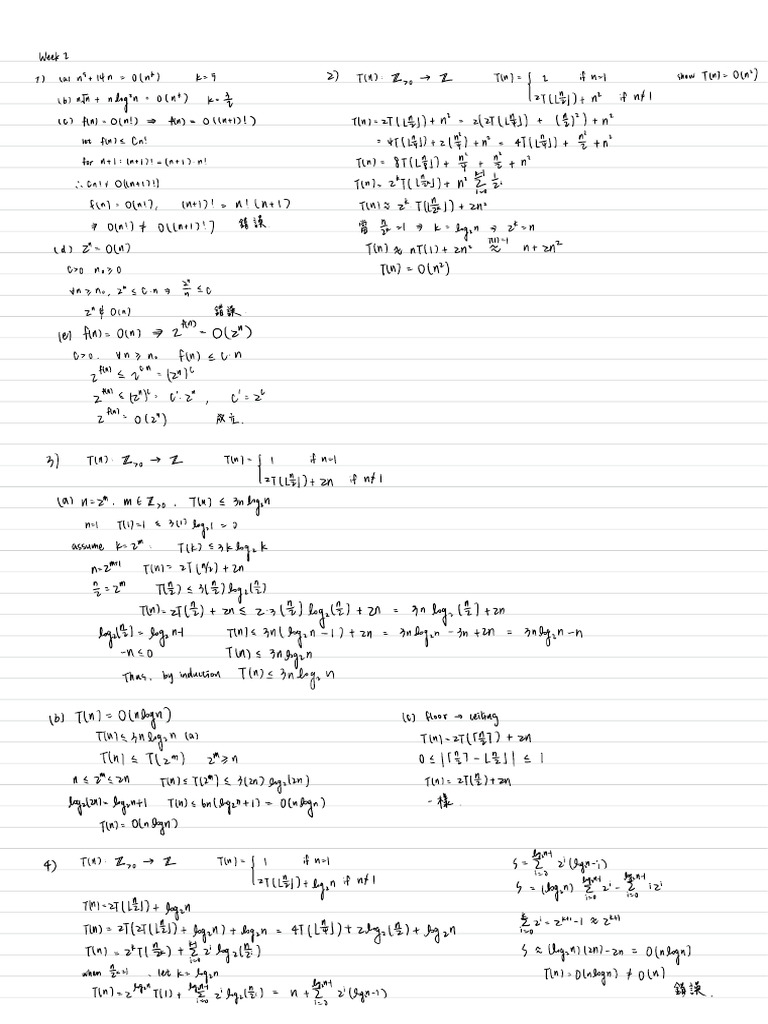 Week 2
1) (a) n⁵ + 14n = O(nᵏ)  k=5
(b) n√n + n log²n = O(nᵏ)  k = 3/2
(c) f(n) = O(n!) ⇒ f(n) = O((n+1)!)
let f(n) ≤ Cn!
for n+1 : (n+1)! = (n+1)·n!
∴ Cn! ≠ O((n+1)!)
f(n) = O(n!), (n+1)! = n!(n+1)
⇒ O(n!) ≠ O((n+1)!) 錯誤
(d) 2ⁿ = O(n)
C>0 n₀≥0
∀n ≥ n₀, 2ⁿ ≤ C·n ⇒ 2ⁿ/n ≤ C
2ⁿ ∉ O(n) 錯誤.
(e) f(n) = O(n) ⇒ 2^f(n) = O(2ⁿ)
C>0. ∀n ≥ n₀ f(n) ≤ C·n
2^f(n) ≤ 2^(C·n) = (2ⁿ)^C
2^f(n) ≤ (2ⁿ)^C = C'·2ⁿ, C' = 2^C
2^f(n) = O(2ⁿ) 成立.
2) T(n): ℤ>0 → ℤ  T(n) = { 2 if n=1  show T(n) = O(n²)
2T(⌊n/2⌋) + n² if n≠1
T(n) = 2T(⌊n/2⌋) + n² = 2(2T(⌊n/4⌋) + (n/2)²) + n²
= 4T(⌊n/4⌋) + 2(n²/4) + n² = 4T(⌊n/4⌋) + n²/2 + n²
T(n) = 8T(⌊n/8⌋) + n²/4 + n²/2 + n²
T(n) = 2ᵏT(⌊n/2ᵏ⌋) + n² Σ_{i=0}^{k-1} 1/2ⁱ
T(n) ≈ 2ᵏ T(⌊n/2ᵏ⌋) + 2n²
當 n/2ᵏ = 1 ⇒ k = log₂n ⇒ 2ᵏ = n
T(n) ≈ nT(1) + 2n² ≈ n + 2n²
T(n) = O(n²)
3) T(n): ℤ>0 → ℤ  T(n) = { 1 if n=1
2T(⌊n/2⌋) + 2n if n≠1
(a) n = 2ᵐ, m ∈ ℤ>0, T(n) ≤ 3n log₂n
n=1 T(1) = 1 ≤ 3(1) log₂1 = 0
assume k = 2ᵐ : T(k) ≤ 3k log₂k
n = 2ᵐ⁺¹ T(n) = 2T(n/2) + 2n
n/2 = 2ᵐ T(n/2) ≤ 3(n/2) log₂(n/2)
T(n) = 2T(n/2) + 2n ≤ 2·3(n/2) log₂(n/2) + 2n = 3n log₂(n/2) + 2n
log₂(n/2) = log₂n-1 T(n) ≤ 3n(log₂n - 1) + 2n = 3n log₂n - 3n + 2n = 3n log₂n - n
-n ≤ 0 T(n) ≤ 3n log₂n
Thus, by induction T(n) ≤ 3n log₂n
(b) T(n) = O(n log n)
T(n) ≤ 3n log₂n (a)
T(n) ≤ T(2ᵐ) 2ᵐ ≥ n
n ≤ 2ᵐ ≤ 2n T(n) ≤ T(2ᵐ) ≤ 3(2n) log₂(2n)
log₂(2n) = log₂n+1 T(n) ≤ 6n(log₂n + 1) = O(n log n)
T(n) = O(n log n)
(c) floor → ceiling
T(n) = 2T(⌈n/2⌉) + 2n
0 ≤ |⌈n/2⌉ - ⌊n/2⌋| ≤ 1
T(n) = 2T(n/2) + 2n
一樣.
4) T(n): ℤ>0 → ℤ  T(n) = { 1 if n=1
2T(⌊n/2⌋) + log₂n if n≠1
T(n) = 2T(⌊n/2⌋) + log₂n
T(n) = 2T(2T(⌊n/2⌋) + log₂n) + log₂n = 4T(⌊n/4⌋) + 2log₂(n/2) + log₂n
T(n) = 2ᵏT(n/2ᵏ) + Σ_{i=0}^{k-1} 2ⁱ log₂(n/2ⁱ)
when n/2ᵏ = 1, let k = log₂n
T(n) = 2^(log₂n) T(1) + Σ_{i=0}^{log₂n-1} 2ⁱ log₂(n/2ⁱ) = n + Σ_{i=0}^{log₂n-1} 2ⁱ(log n-i)
S = Σ_{i=0}^{log₂n-1} 2ⁱ(log n-i)
S = (log₂n) Σ_{i=0}^{log₂n-1} 2ⁱ - Σ_{i=0}^{log₂n-1} i2ⁱ
Σ_{i=0}^{k} 2ⁱ = 2ᵏ⁺¹-1 ≈ 2ᵏ⁺¹
S ≈ (log₂n)(2n) - 2n = O(n log n)
T(n) = O(n log n) ≠ O(n)
錯誤.